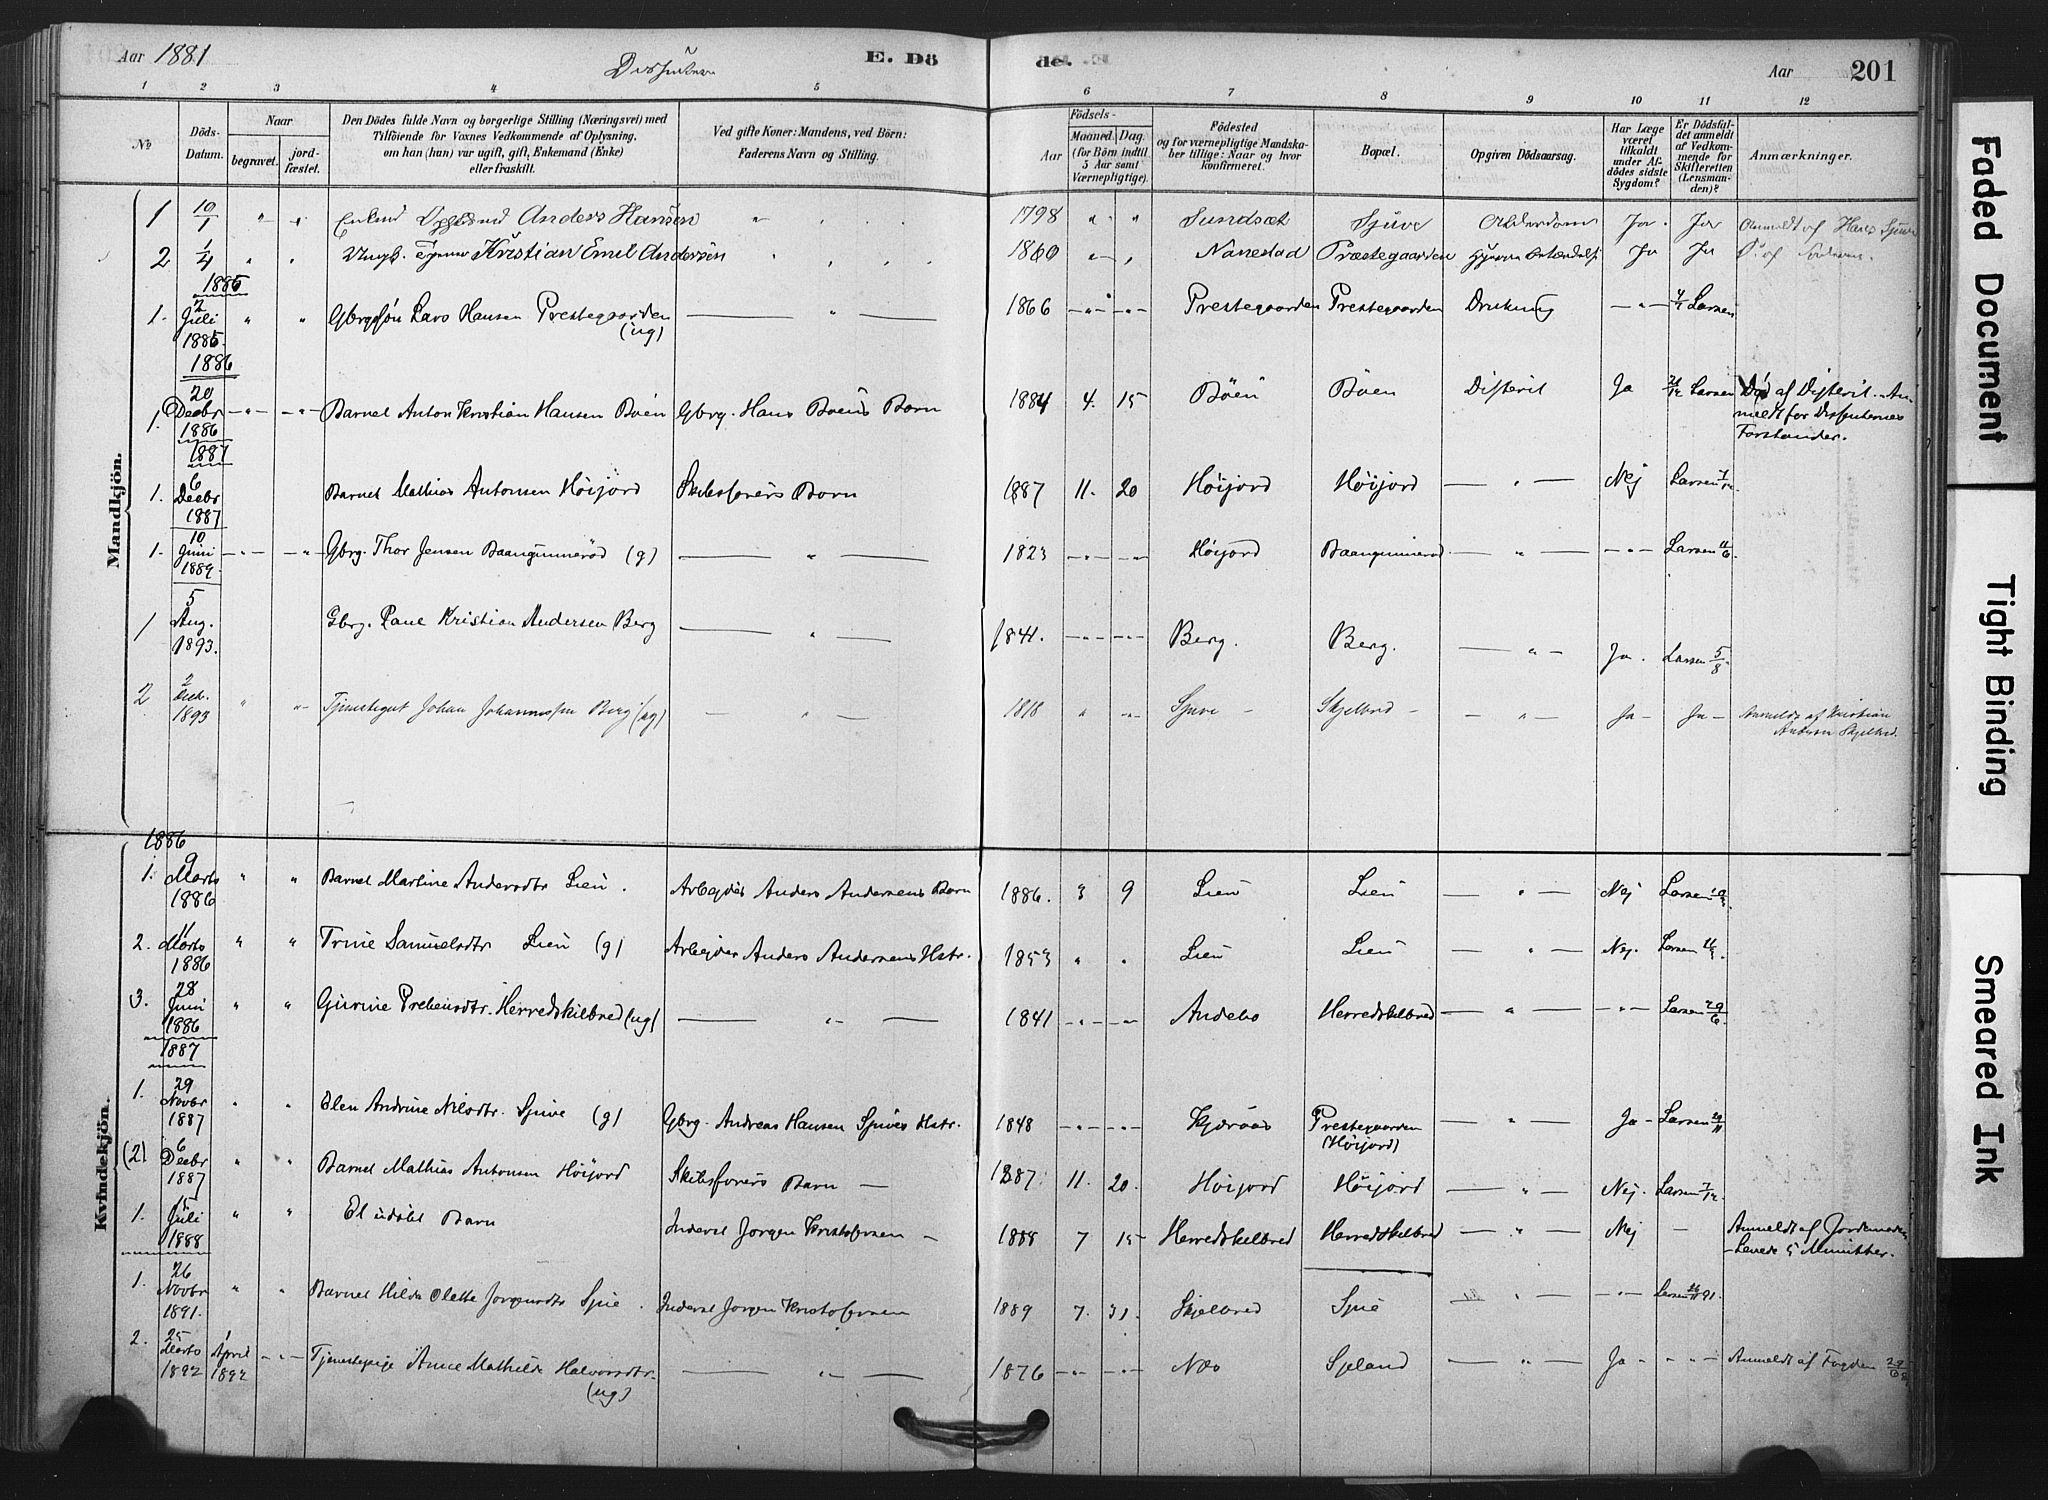 Aar 1881
E. Dö
de.
Aar
201
1 2 3 4 5 6 7 8 9 10 11 12
No
Döds-Datum.
Naar
begravet.
jord-fæstet.
Den Dödes fulde Navn og borgerlige Stilling (Næringsvei) med
Tilföiende for Voxnes Vedkommende af Oplysning,
om han (hun) var ugift, gift, Enkemand (Enke)
eller fraskilt.
Ved gifte Koner: Mandens, ved Börn:
Faderens Navn og Stilling.
Födsels-
Aar
Maaned. Dag.
(for Börn indtil
5 Aar samt
Værnepligtige).
Födested
og for værnepligtige Mandska-
ber tillige: Naar og hvor
konfirmeret.
Bopæl.
Opgiven Dödsaarsag.
Har Læge
været
tilkaldt
under Af-
dödes sidste
Sygdom?
Er Dödsfal-
det anmeldt
af Vedkom-
mende for
Skifteretten
(Lensman-
den)?
Anmærkninger.
Mandkjön.
1 10/1 " " Anders Hansen " 1798 " " Sundsæt Sjuve Alderdom Ja. Ja Anmeldt af Hans Sjuve
2 1/4 " " Kristian Emil Andersen " 1860 " " Nanestad Præstegaarden Ja Ja
1885
1. 2 Juli 1885 " " Gbrgsøn Lars Hansen Prestegaarden (ug) — " — 1866 -"- -"- Prestegaarden Prestegaarden Drukning -"- 4/7 Larsen
1886
1. 20 Decbr 1886 -"- -"- Barnet Anton Kristian Hansen Boen Gbrg. Hans Boens Barn 1884 4. 15 Böen Boen Difterit Ja Larsen Död af Difterit. An-
meldt for Dissenternes
Forstander.
1887
1. 6 Decbr 1887 Barnet Mathias Antonsen Höijord Skibsförers Barn 1887 11. 20 Höijord Höijord — " — Nej Larsen 7/12.
1. 10 Juni 1889. -"- -"- Gbrg. Thor Jensen Baangunnerød (g) — " — 1823 -"- -"- Höijord Baangunnerød — " — -"- Larsen 11/6.
1 5 Aug. 1893. Gbrg. Paul Kristian Andersen Berg — " — 1841. -"- -"- Berg. Berg. — " — Ja. Larsen 5/8.
2 2 Decb. 1893 " " Tjenestegut Johan Johannessen Berg (ug) — " — 1818 " -"- Sjuve - Skjelbred - — " — Ja - Ja - Anmeldt af Kristian
Andersen Skjelbred.
Kvindekjön.
1886
1. 9 Marts 1886 " " Barnet Martine Andersdtr Lien. Arbejder Anders Andersens Barn 1886. 3 9 Lien Lien — " — Nej Larsen
2. 11 Marts 1886 " " Trine Samuelsdtr Lien (g) Arbejder Anders Andersens Hstr. 1853 " " Lien Lien — " — Nej. Larsen 11/3.
3. 28 Juni 1886 " " Gurine Prebensdtr. Herredskilbred (ug) — " — 1841 -"- -"- Andebo Herredskilbred — " — -"- Larsen 29/6.
1887
1. 29 Novbr 1887 " " Elen Andrine Nilsdtr. Sjuve (g) Gbrg. Andreas Hansen Sjuves Hstr. 1848 -"- -"- Kjæraas Prestegaarden
(Höijord) — " — Ja - Larsen 29/11
(2) 6 Decbr 1887 " " Barnet Mathias Antonsen Höijord Skibsförers Barn — 1887 11. 20. Höijord Höijord — " — Nej. Larsen 7/12.
1. 15 Juli 1888 " " Et udöbt Barn Inderst Jørgen Kristofersen — 1888 7 15 Herredskelbred Herredskelbred — " — Nej — Anmeldt af Jordemoder
- Levede 5 Minutter.
1. 26 Novbr 1891. " " Barnet Hilda Olette Jorgensdtr Sjue. Inderst Jørgen Kristofersen 1889 7. 31. Skjelbred Sjue — " — -"- Larsen 26/11 91.
2. 25 Marts 1892 1 April 1892 -"- Tjenestepige Anne Mathilde Halvorsdtr.
(ug) — " — 1876 -"- -"- Næs Sjeland — " — Ja - " - Anmeldt af Fogden
Faded Document
Tight Binding
Smeared Ink